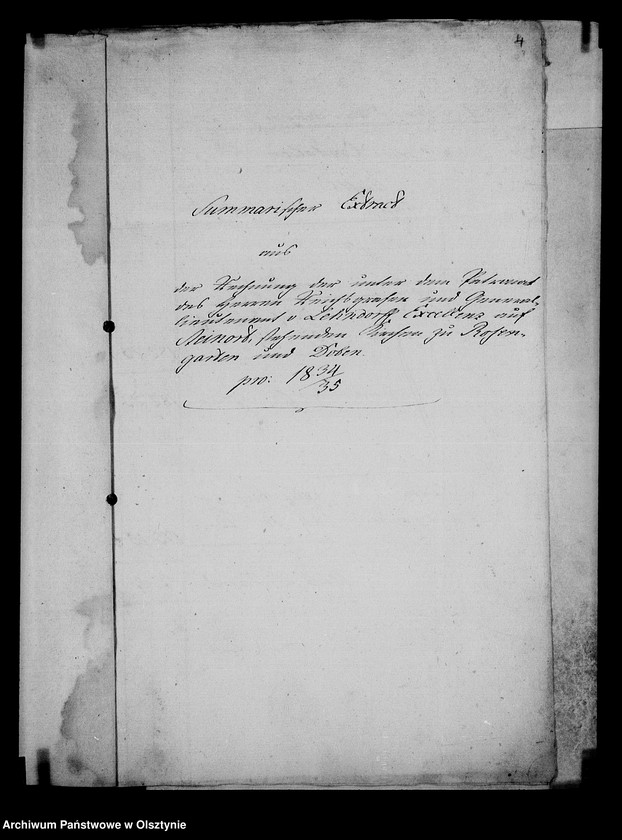 4
Summarischer Extract
aus
der Rechnung der unter dem Patronat
des Herrn Reichsgrafen und General-
lieutenant v Lehndorff Excellenz auf
Steinort, stehenden Kirchen zu Rosen-
garten und Doben
pro: 1834/35
Archiwum Państwowe w Olsztynie